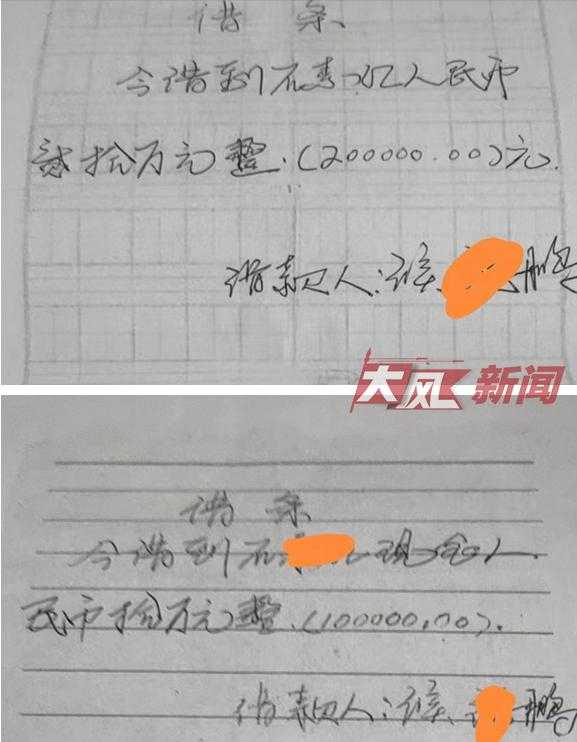 借条
今借到石秀江人民币
贰拾万元整.(200000.00)元.
借款人:侯 鹏
大风新闻
借条
今借到石 现金人
民币拾万元整.(100000.00).
借款人:侯 鹏